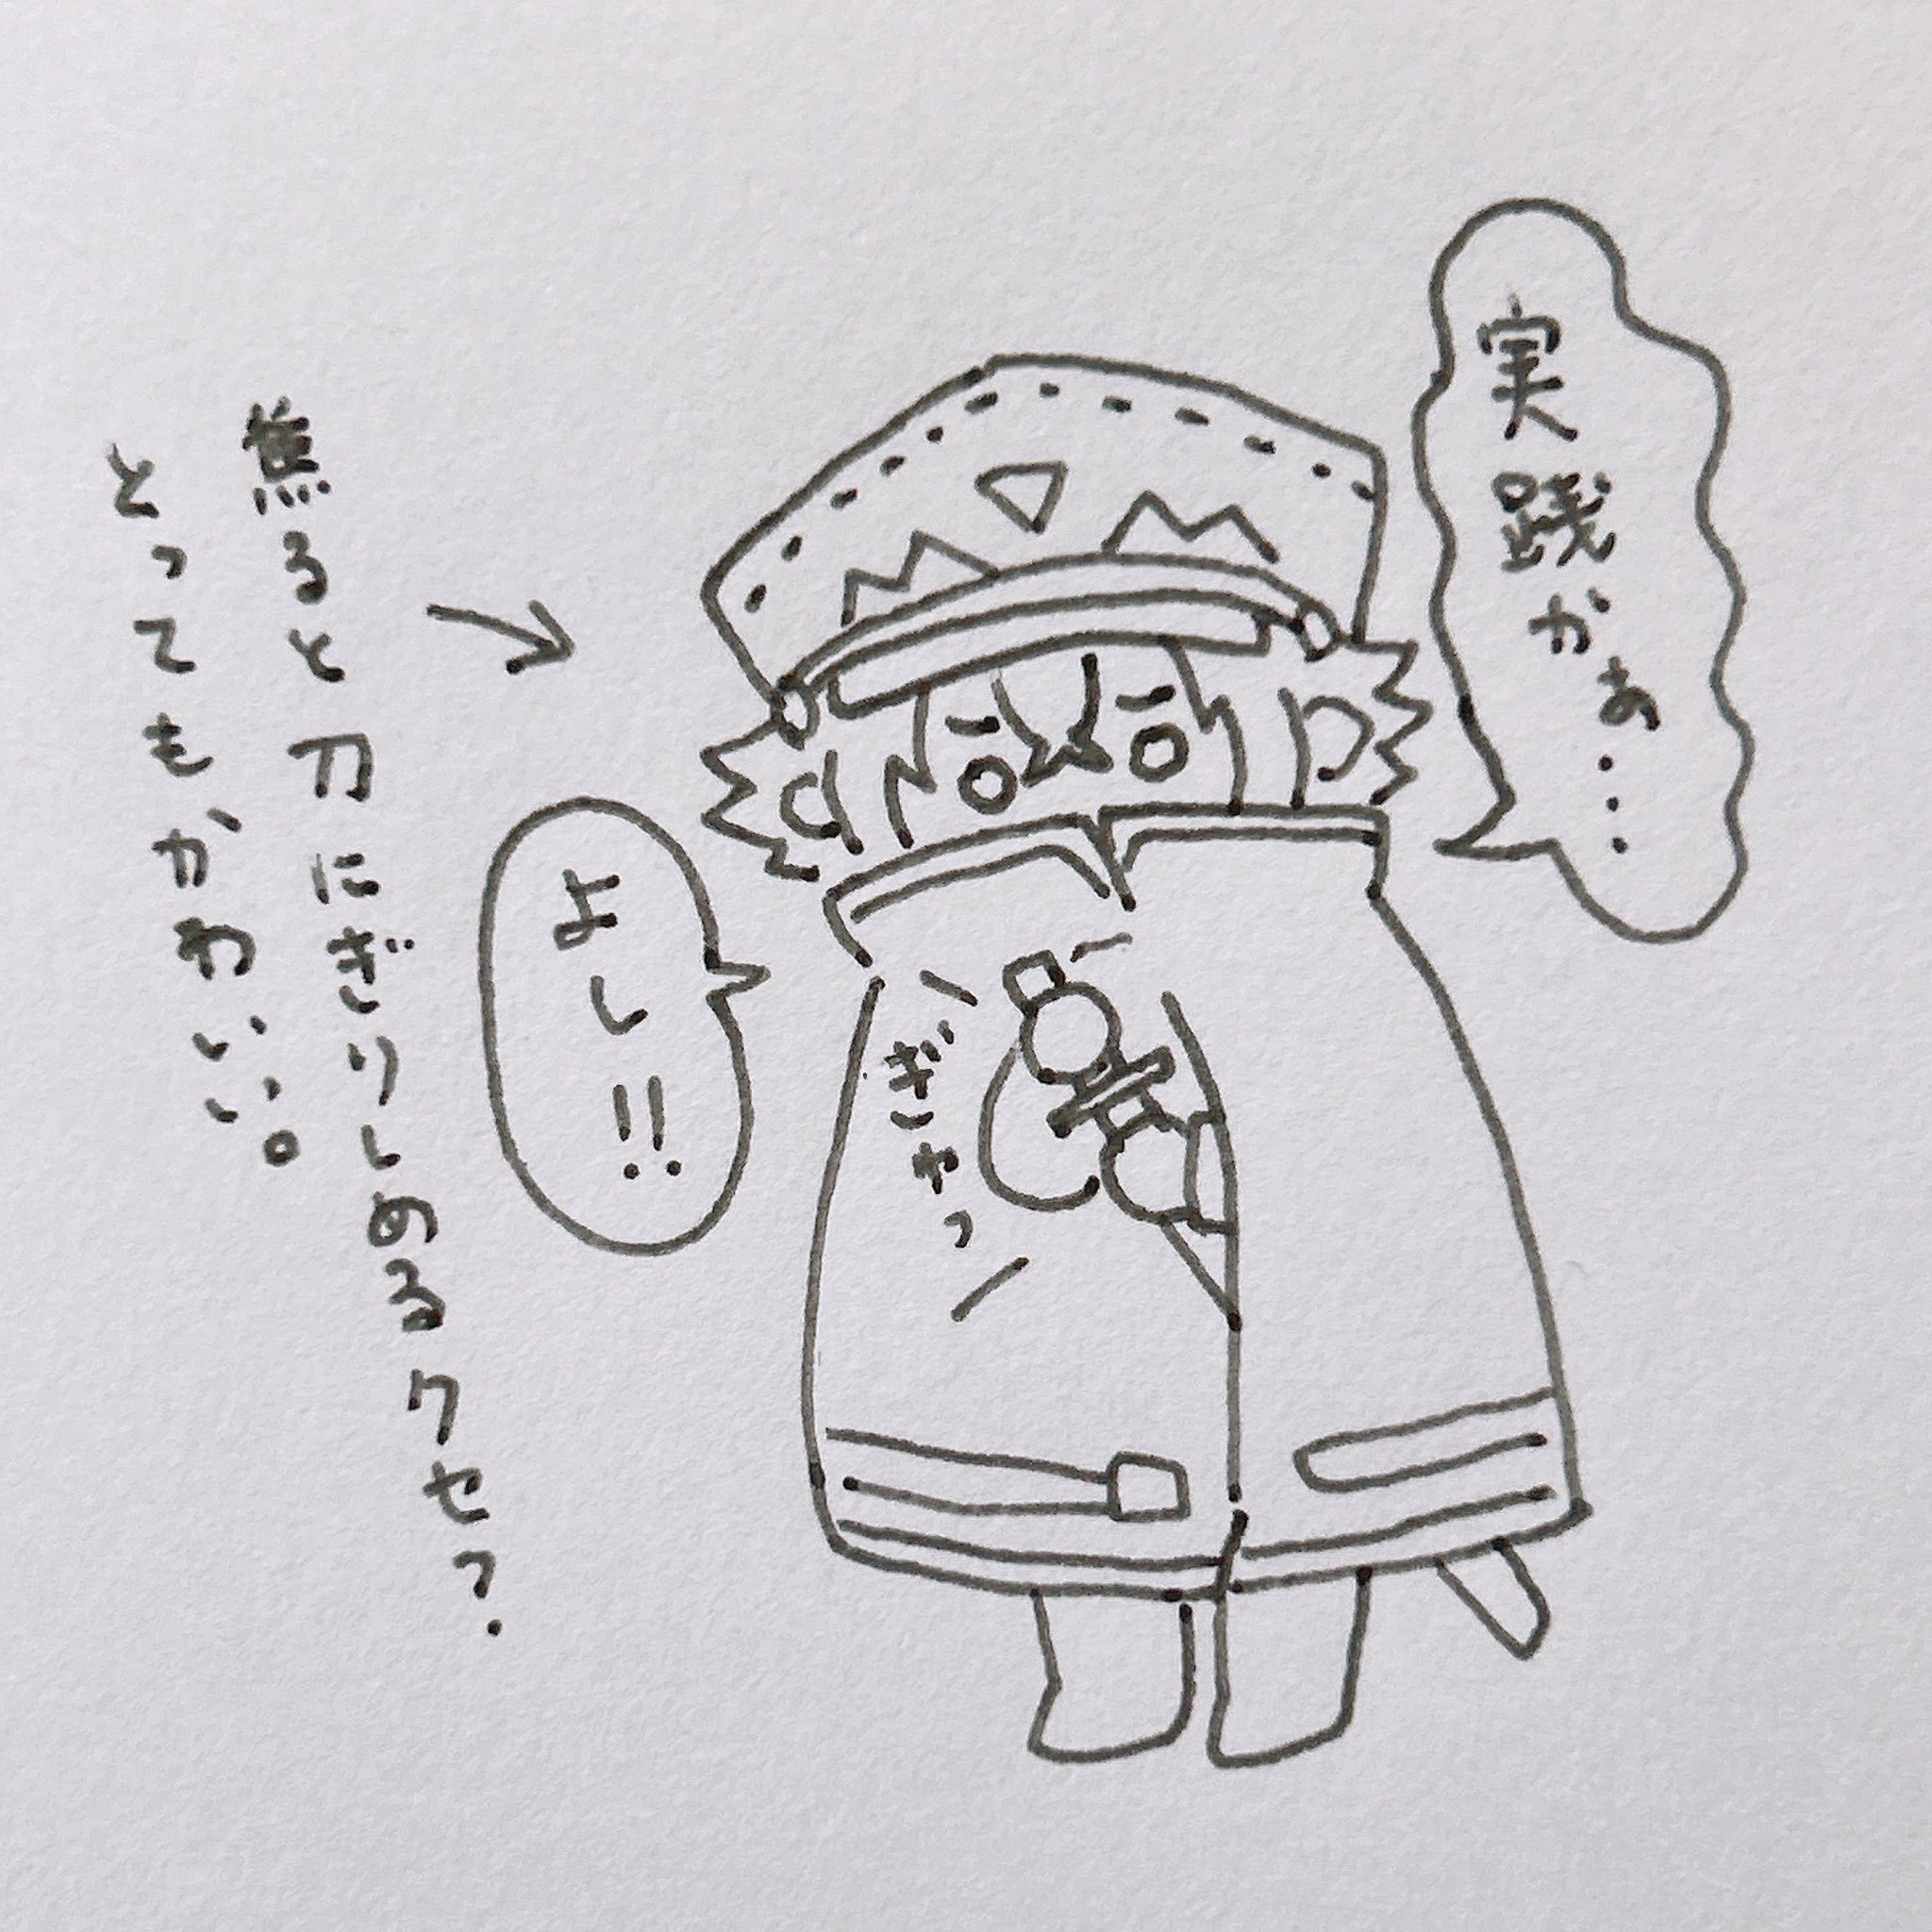 実践かぁ...
よし!!
ぎゃっ
焦ると刀にぎりしめるクセ?
とってもかわいい。